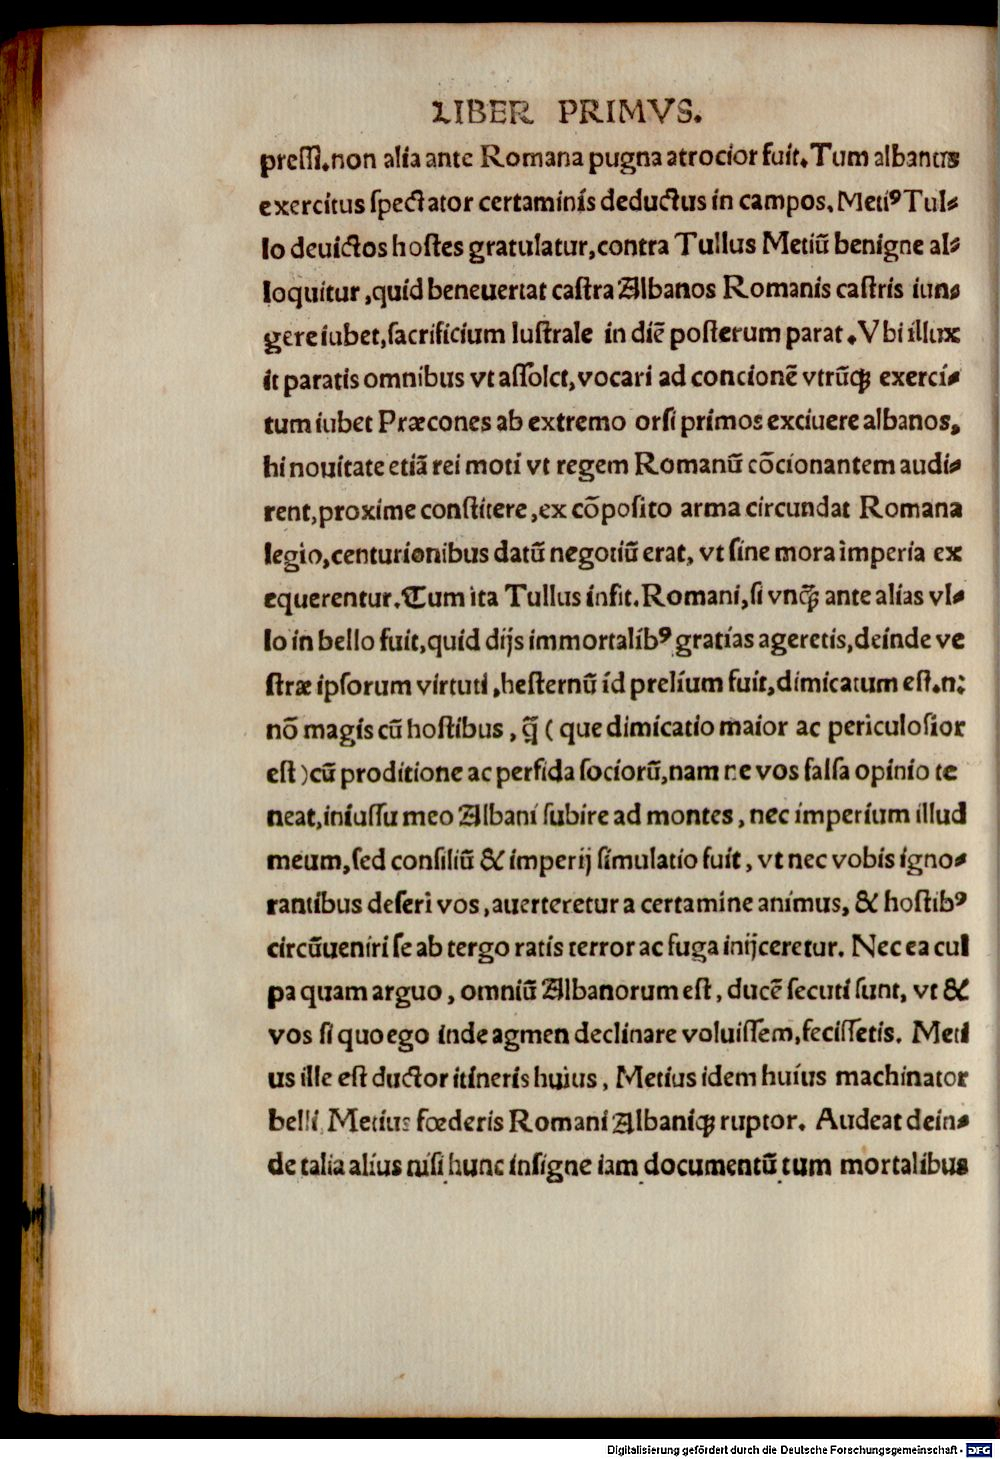 LIBER PRIMVS.
preſſi.non alia ante Romana pugna atrocior fuit.Tum albanus
exercitus ſpectator certaminis deductus in campos.Metiꝰ Tul-
lo deuictos hoſtes gratulatur,contra Tullus Metiū benigne al-
loquitur,quid beneuertat caſtra Albanos Romanis caſtris iun-
gere iubet,ſacrificium luſtrale in diē poſterum parat.Vbi illux
it paratis omnibus vt aſſolet,vocari ad concionē vtrūqꝫ exerci-
tum iubet Præcones ab extremo orſi primos exciuere albanos,
hi nouitate etiā rei moti vt regem Romanū cōcionantem audi-
rent,proxime conſtitere,ex cōpoſito arma circundat Romana
legio,centurionibus datū negotiū erat, vt ſine mora imperia ex
equerentur.Tum ita Tullus infit.Romani,ſi vnq̄ꝫ ante alias vl-
lo in bello fuit,quid dijs immortalibꝰ gratias ageretis,deinde ve
ſtræ ipſorum virtuti,heſternū id prelium fuit,dimicatum eſt.n:
nō magis cū hoſtibus, q̄ꝫ ( que dimicatio maior ac periculoſior
eſt )cū proditione ac perfida ſociorū,nam ne vos falſa opinio te
neat,iniuſſu meo Albani ſubire ad montes, nec imperium illud
meum,ſed conſiliū & imperij ſimulatio fuit, vt nec vobis igno-
rantibus deſeri vos,auerteretur a certamine animus, & hoſtibꝰ
circūueniri ſe ab tergo ratis terror ac fuga inijceretur. Nec ea cul
pa quam arguo, omniū Albanorum eſt, ducē ſecuti ſunt, vt &
vos ſi quo ego inde agmen declinare voluiſſem,feciſſetis. Meti
us ille eſt ductor itineris huius, Metius idem huius machinator
belli Metius fœderis Romani Albaniqꝫ ruptor. Audeat dein-
de talia alius niſi hunc inſigne iam documentū tum mortalibus
Digitalisierung gefördert durch die Deutsche Forschungsgemeinschaft - DFG